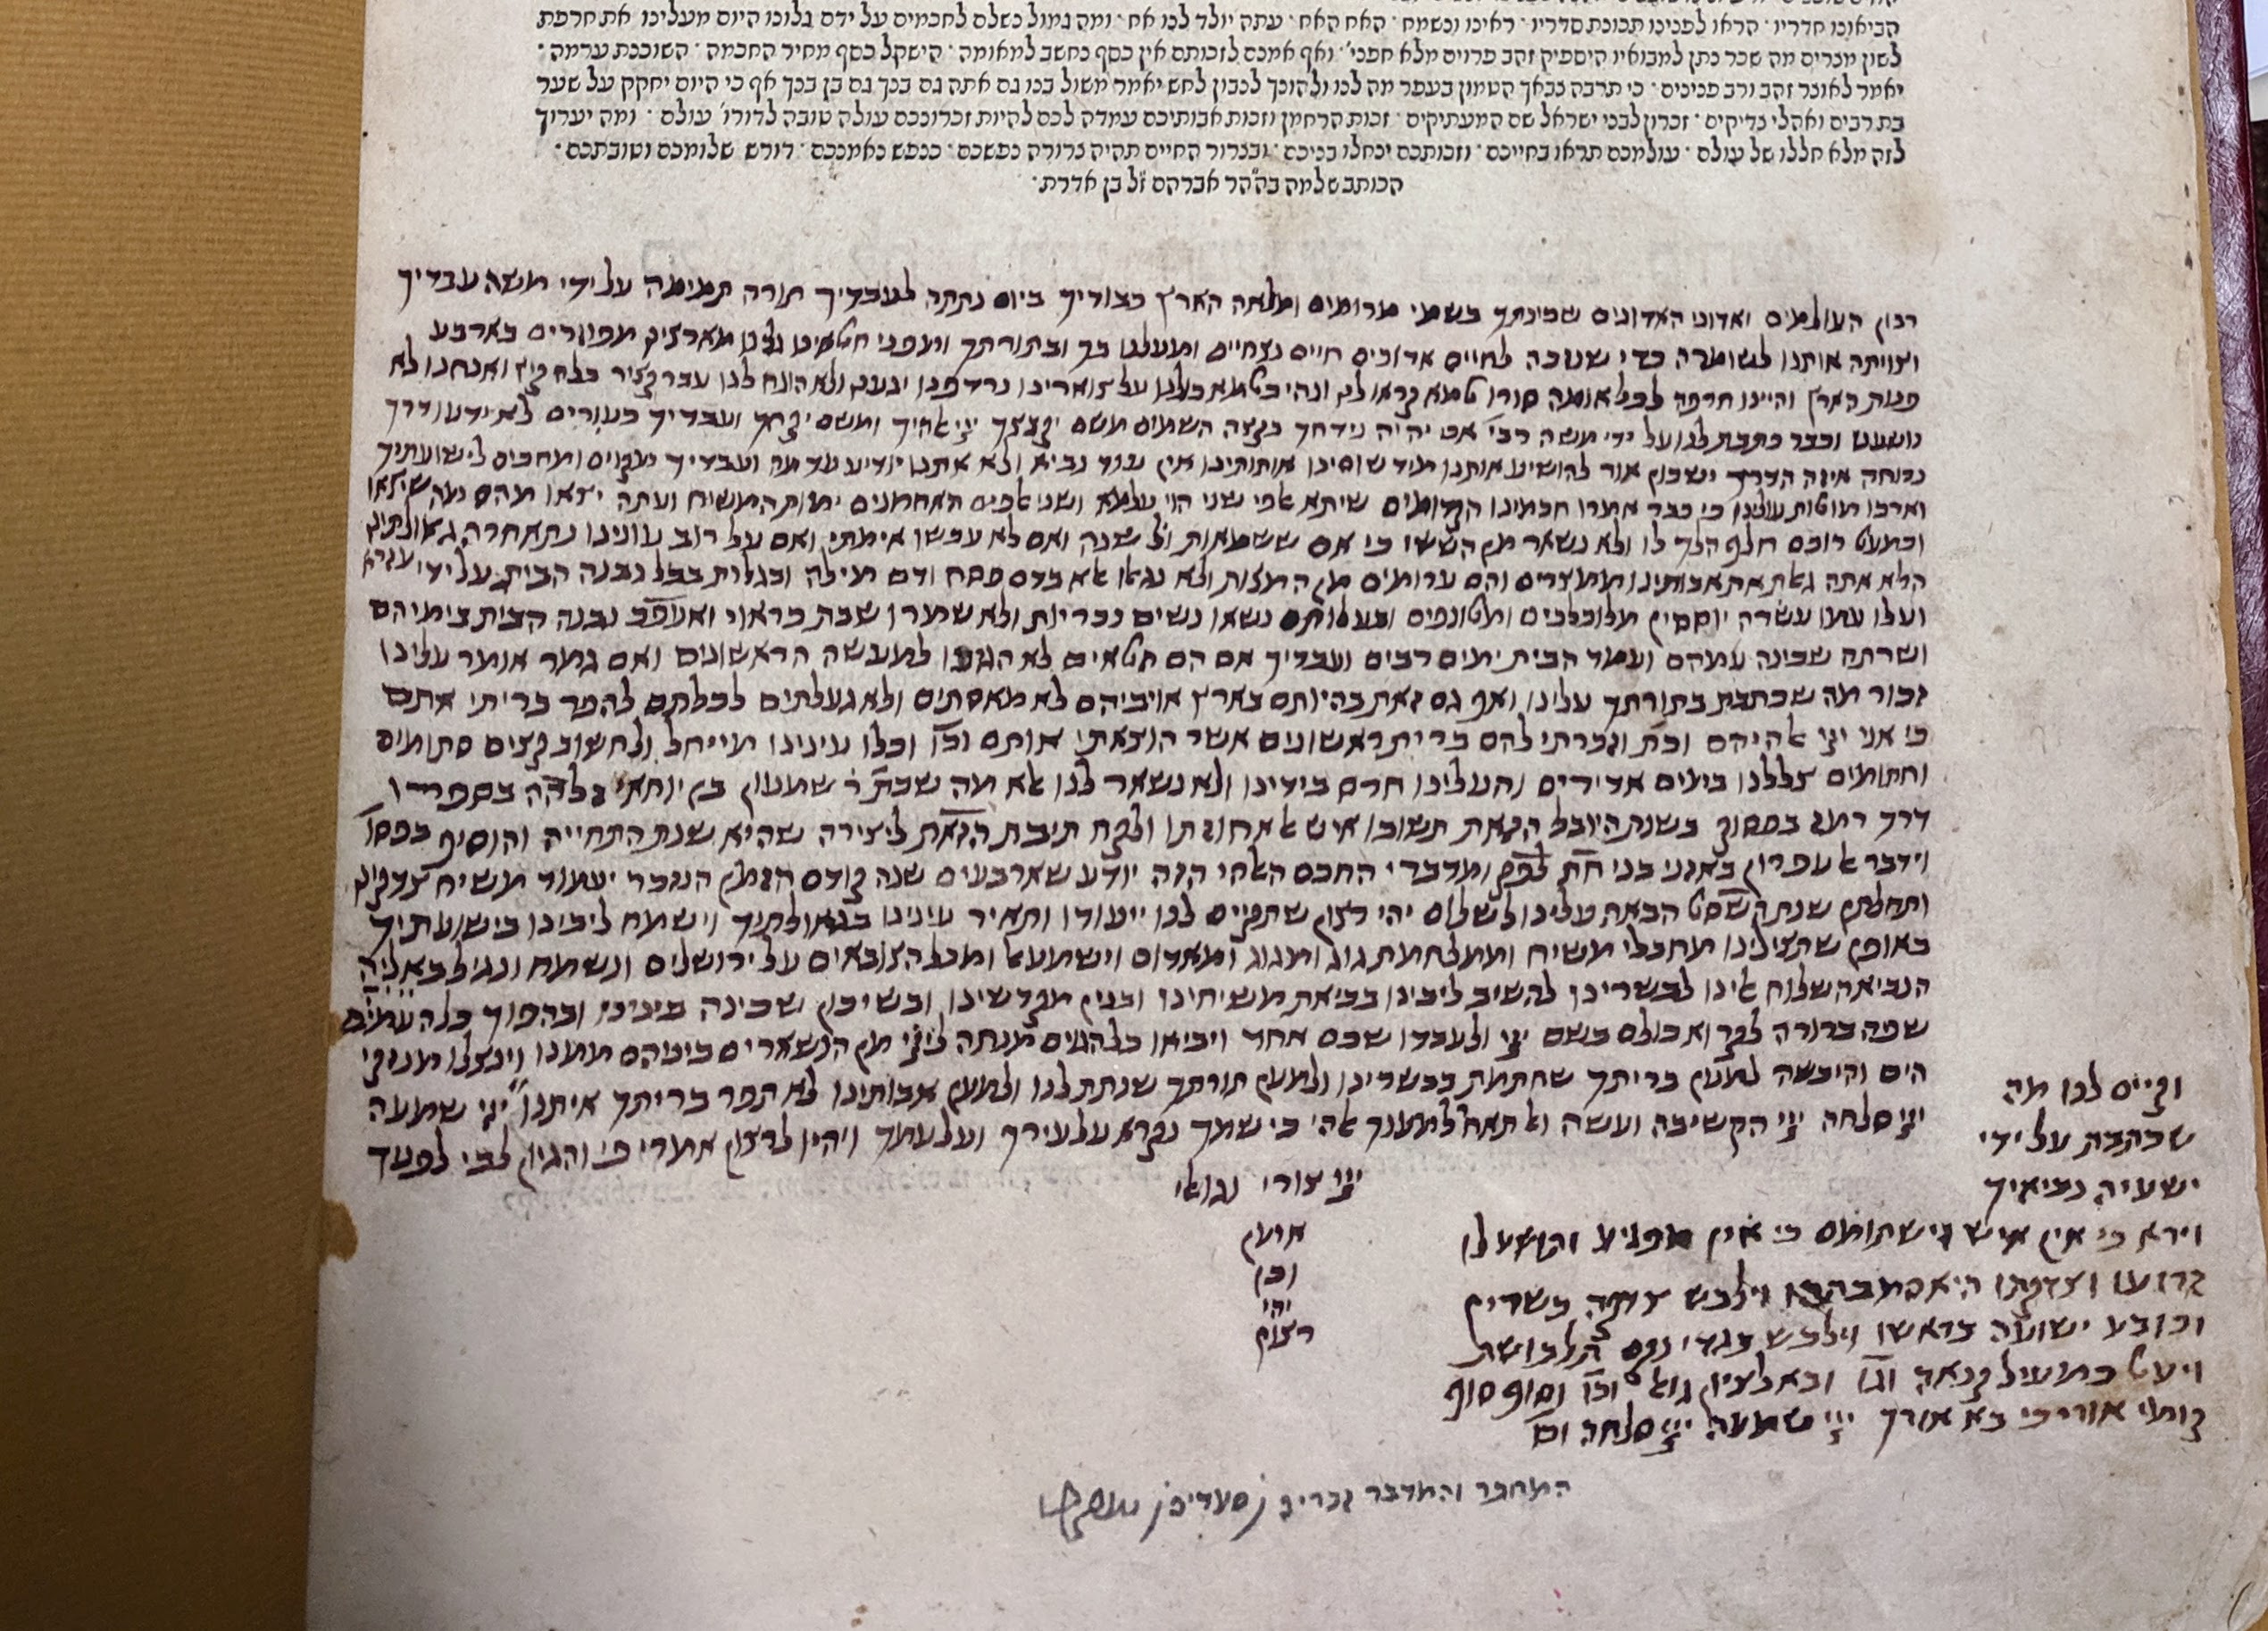 הביאונו חדריו · הראו לפנינו תכונת סדריו · ראינו ונשמח · האח האח · עתה יולד לנו אח · ומה גמול נשלם לחכמים על ידם גלונו היום מעלינו את חרפת
לשון מצרים מה שכר נתן למבואיו היספיק זהב פרוים מלא חפני' · ואף אמנם לזכותם אין כסף נחשב למאומה · הישקל כסף מחיר החכמה · השוכנת ערמה ·
יאמר לאוצר זהב ורב פנינים · כי תרבה צבאך הטמון בעפר מה לנו ולהוצך לנבון לחש יאמר משול בנו גם אתה גם בנך גם בן בנך אף כי היום יחקק על שער
בת רבים ואהלי צדיקים · זכרון לבני ישראל שם המעתיקים · זכות הרחמן וזכות אבותיכם עמדה לכם להיות זכרונכם עולה טובה לדורו' עולם · ומה יעריך
לזה מלא חללו של עולם · עולמכם תראו בחייכם · וזכותכם ינחלו בניכם · ובצרור החיים תהיה צרורה נפשכם · כנפש נאמנכם · דורש שלומכם וטובתכם ·
הכותב שלמה בה"הר אברהם ז"ל בן אדרת ·
רבון העולמים ואדוני האדונים שכינתך בשמי מרומים ומלאה הארץ כבודיך ביום נתתה לעבדיך תורה תמימה על ידי משה עבדיך
וצויתה אותנו לשומרה כדי שנזכה לחיים ארוכים חיים נצחיים ומעלנו בך ובתורתך ומפני חטאינו גלינו מארצינו מפוזרים בארבע
פנות הארץ והיינו חרפה לכל אומה סורו טמא קראו לנו ונהי כטמא כולנו על צוארינו נרדפנו יגענו ולא הונח לנו עבר קציר כלה קיץ ואנחנו לא
נושענו וכבר כתבת לנו על ידי משה רבי' אם יהיה נידחך בקצה השמים משם יקבצך ייי אלהיך ומשם יקחך ועבדיך כעורים לא ידעו דרך
נכוחה איזה הדרך ישכון אור להושיע אותנו מיד שוסינו אותותינו אין עוד נביא ולא אתנו יודיע עד מה ועבדיך מקוים ומחכים לישועתיך
וארכו מוטות עולנו כי כבר אמרו חכמינו הקדומים שיתא אלפי שני הוי עלמא ושני אלפים האחרונים ימות המשיח ועתה יצאו מהם מה שיצאו
וכמעט רובם חלף הלך לו ולא נשאר מן הששי כי אם ששמאות ול שנה ואם לא עכשו אימתי ואם על רוב עונינו נתאחרה גאולתינו
הלא אתה גאלת את אבותינו ממצרים והם ערומים מן המצות ולא נגאלו אלא בדם פסח ודם מילה ובגלות בבל נבנה הבית על ידי עזרא
ועלו עמו עשרה יוחסין מלוכלכים ומטונפים ובעלותם נשאו נשים נכריות ולא שמרו שבת כראוי ואעפכ נבנה הבית בימיהם
ושרתה שכינה עמהם ועמד הבית ימים רבים ועבדיך אם הם חטאים לא הגיעו למעשה הראשונים ואם גמר אומר עלינו
זכור מה שכתבת בתורתך עלינו ואף גם זאת בהיותם בארץ אויביהם לא מאסתים ולא געלתים לכלתם להפר בריתי אתם
כי אני ייי אלהיהם וכת' וזכרתי להם ברית ראשונים אשר הוצאתי אותם וכו' וכלו עינינו מייחל ולחשוב קצים סתומים
וחתומים צללנו במים אדירים והעלינו חרס בידינו ולא נשאר לנו אלא מה שכת' ר' שמעון בן יוחאי זלהה בספרו
דרך רמז בפסוק בשנת היובל הזאת תשובו איש אל אחוזתו ולקח תיבת הזאת ליצירה שהיא שנת התחייה והוסיף בפסו'
וידבר אל עפרון באזני בני חת לפק ומדברי החכם האלהי הזה יודע שארבעים שנה קודם הזמן הנזכר יעמוד משיח צדקינו
ותחלתן שנת השסט הבאה עלינו לשלום יהי רצון שתקיים לנו ייעודו ותאיר עינינו בגאולתיך וישמח ליבינו בישועתיך
באופן שתצילנו מחבלי משיח וממלחמת גוג ומגוג ומאדום וישמעאל ומכל הצובאים על ירושלים ונשמח ונגיל באליה
הנביא השלוח אלינו לבשרינו להשיב ליבינו בביאת משיחינו ובנין מקדשינו ובשיכון שכינה בינינו ובהפוך כל העמים
שפה ברורה לקרוא כולם בשם ייי ולעבדו שכם אחד ויביאו כל הגוים מנחה לייי מן הנשארים ביניהם ממנו וינצלו מנזקי
הים והיבשה למען בריתך שחתמת בבשרינו ולמען תורתך שנתת לנו ולמען אבותינו לא תפר בריתך איתנו ייי שמעה
ייי סלחה ייי הקשיבה ועשה ואל תאחר למענך אלהי כי שמך נקרא על עירך ועל עמך ויהיו לרצון אמרי פי והגיון לבי לפניך
ייי צורי וגואלי
אמן
וכן
יהי
רצון
וקיים לנו מה
שכתבת על ידי
ישעיה נביאיך
וירא כי אין איש וישתומם כי אין מפגיע ותושע לו
זרועו וצדקתו היא סמכתהו וילבש צדקה כשריון
וכובע ישועה בראשו וילבש בגדי נקם תלבושת
ויעט כמעיל קנאה וגו' ובא לציון גואל וכו' וסוף סוף
קומי אורי כי בא אורך ייי שמעה ייי סלחה וכו'
המחבר והמדבר